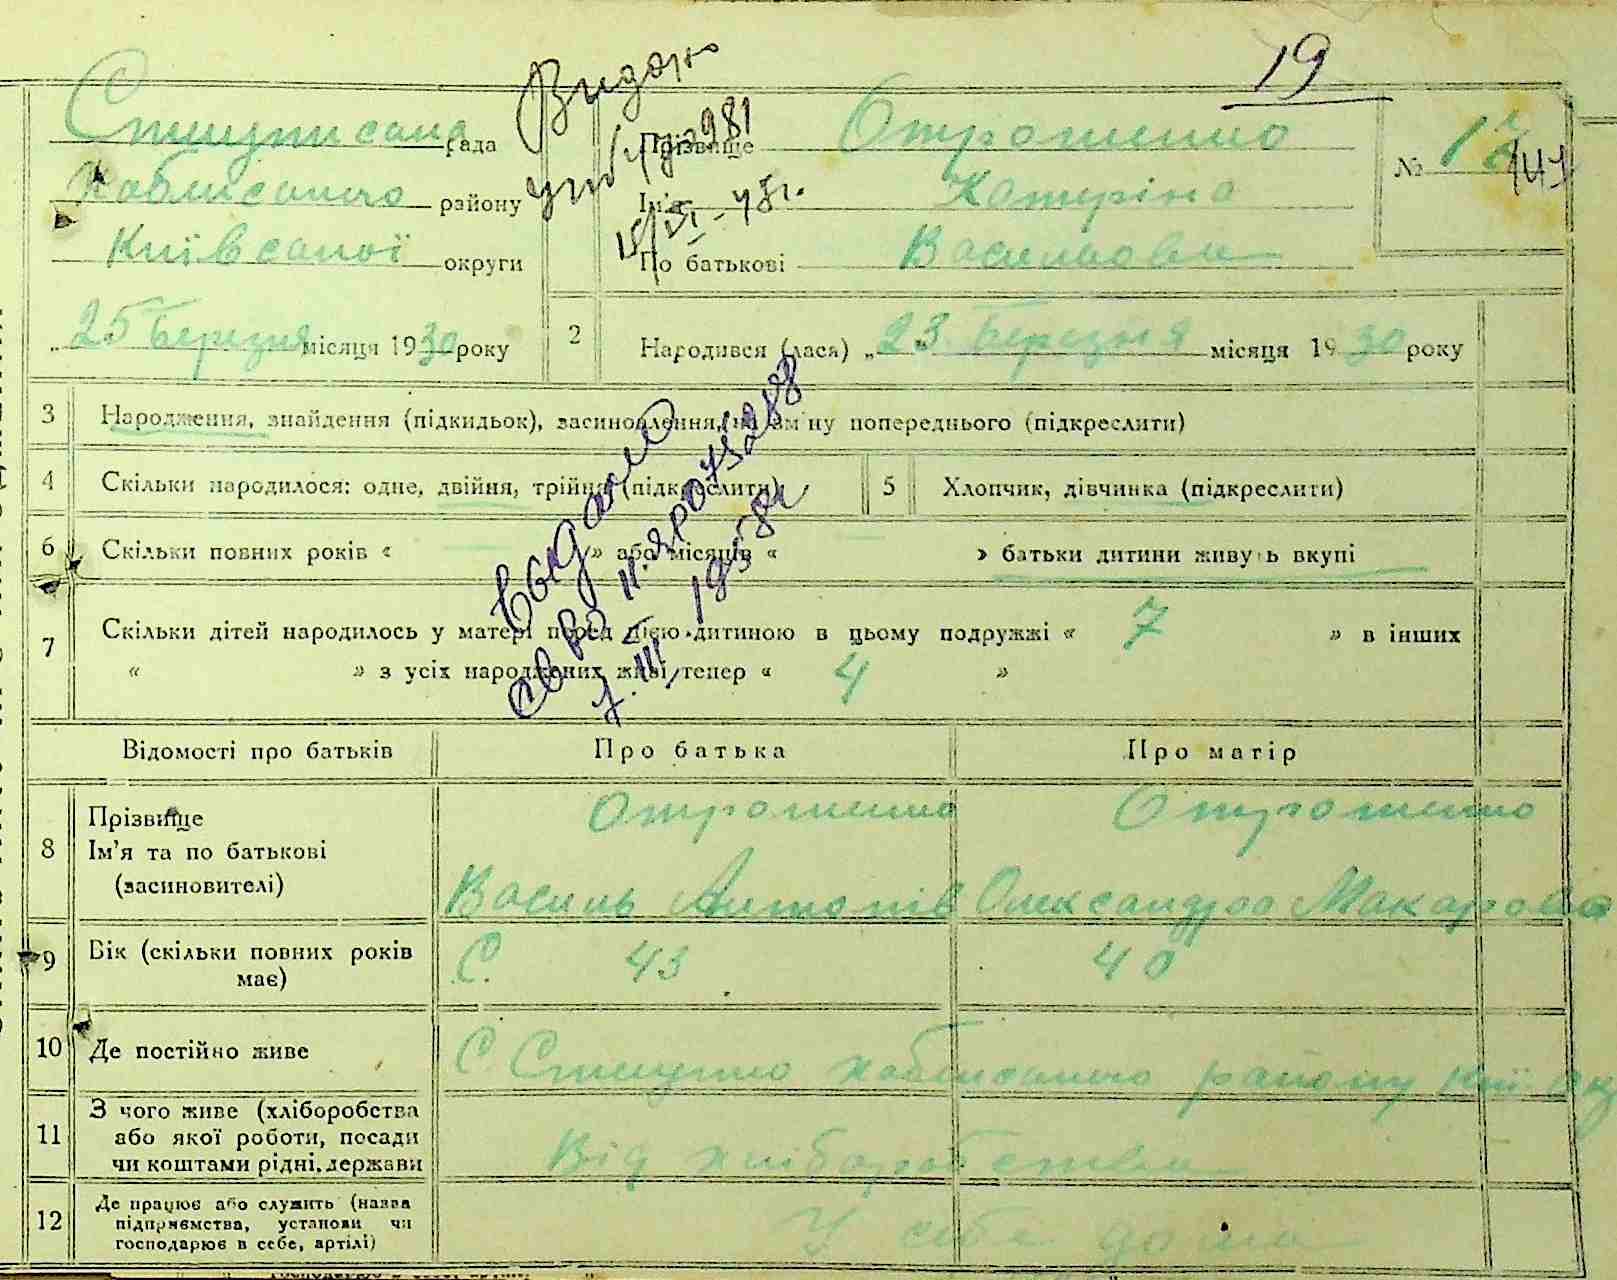 19
рада Прізвище Отрошенко № 18
району Ім'я Катеріна
Київської округи По батькові Васильовна
„25 Березня місяця 1930 року 2 Народився (лася) „23 Березня місяця 1930 року
3 Народження, знайдення (підкидьок), засиновлення, на зміну попереднього (підкреслити)
4 Скільки народилося: одне, двійня, трійня (підкреслити) 5 Хлопчик, дівчинка (підкреслити)
6 Скільки повних років « » або місяців « » батьки дитини живуть вкупі
7 Скільки дітей народилось у матері перед цією дитиною в цьому подружжі « 7 » в інших
« » з усіх народжених живі тепер « 4 »
Видано
Выдано
Відомості про батьків Про батька Про матір
8 Прізвище Отрошенко Отрошенко
Ім'я та по батькові
(засиновителі) Василь Антонів Олександра Макарова
9 Вік (скільки повних років має) 43 40
10 Де постійно живе С району
11 З чого живе (хліборобства
або якої роботи, посади Від хліборобства
чи коштами рідні, держави
12 Де працює або служить (назва
підприємства, установи чи У себе дома
господарює в себе, артілі)